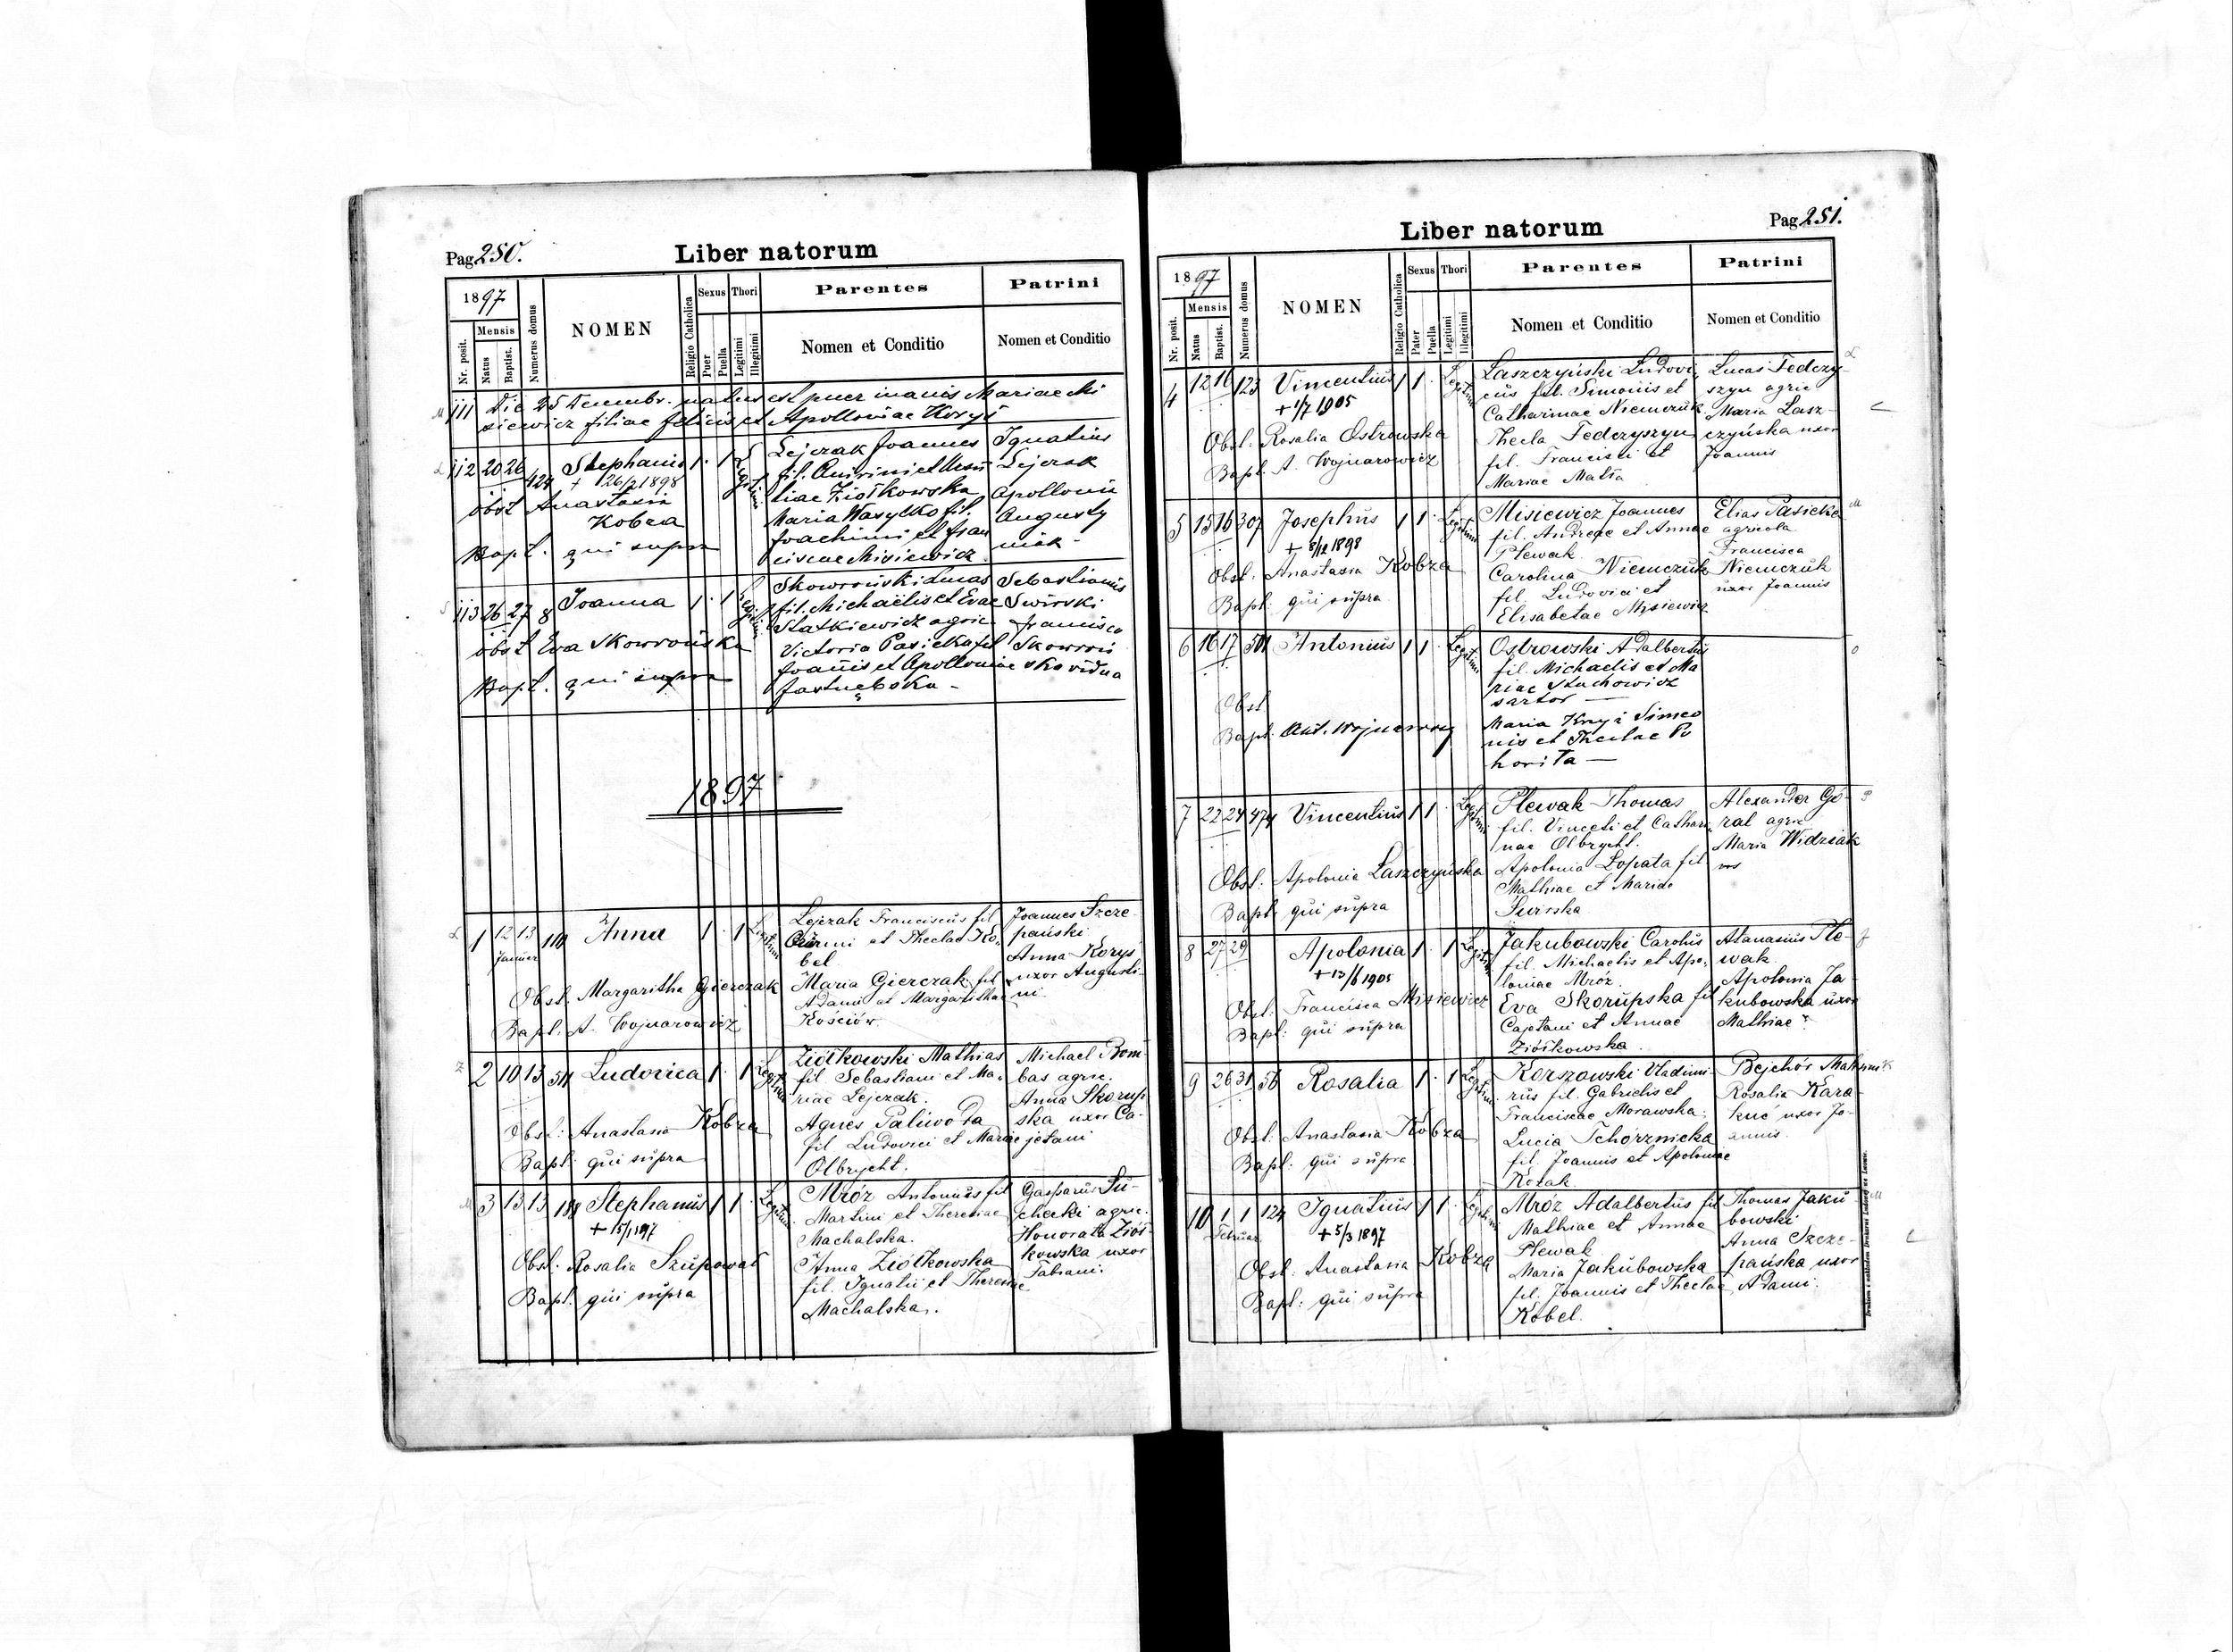 Pag. 250.
Liber natorum
1897
Nr. posit.
Mensis
Natus
Baptist.
Numerus domus
NOMEN
Religio Catholica
Sexus
Puer
Puella
Thori
Legitimi
Illegitimi
Parentes
Nomen et Conditio
Patrini
Nomen et Conditio
111 Die 25 Decembr. natus est puer inanis Mariae Mi
siewicz filiae Felicis et Apolloniae Koryś
112 20 26 424 Stephania 1 1
+ 26/2 1898
obst Anastasia
Kobza
Bapt. qui supra
Lejczak Joannes
fil. Quirini et
liae Ziółkowska
Maria Wasylko fil.
Joachimi et Fran
ciscae Misiewicz
Ignatius
Lejczak
Apollonia
Augusty
niak
113 26 27 8 Joanna 1 1
obst Eva Skowrońska
Bapt. qui supra
Skowroński Lucas
fil. Michaëlis et Evae
Statkiewicz agric.
Victoria Pasieka fil
Joañis et Apolloniae
Jastrzębska
Sebastianus
Swirski
Francisca
Skowroń
ska vidua
1897
1 12 13 110 Anna 1 1
Januar
Obst. Margaritha Gierczak
Bapt. A. Wojnarowicz
Lejczak Franciscus fil
Quirini et Theclae Ko-
bel
Maria Gierczak fil
Adami et Margarithae
Kościów
Joannes Szcze-
pański
Anna Koryś
uxor Augusti-
ni.
2 10 13 511 Ludovica 1 1
Obst. Anastasia Kobza
Bapt. qui supra
Ziółkowski Mathias
fil. Sebastiani et Ma-
riae Lejczak.
Agnes Paliwoda
fil Ludovici et Mariae
Olbrycht.
Michael Bom
bas agric.
Anna Skorup
ska uxor Ca-
jetani
3 13 13 188 Stephanus 1 1
+ 15/1 1897
Obst. Rosalia Szupował
Bapt. qui supra
Mróz Antonius fil
Martini et Theresiae
Machalska.
Anna Ziółkowska
fil. Ignatii et Theresiae
Machalska.
Gasparus Su-
checki agric.
Honorata Ziół-
kowska uxor
Fabiani.
Pag. 251.
Liber natorum
1897
Nr. posit.
Mensis
Natus
Baptist.
Numerus domus
NOMEN
Religio Catholica
Sexus
Puer
Puella
Thori
Legitimi
Illegitimi
Parentes
Nomen et Conditio
Patrini
Nomen et Conditio
4 12 16 123 Vincentius 1 1
+ 1/7 1905
Obst. Rosalia Ostrowska
Bapt. A. Wojnarowicz
Laszczyński Ludovi
cus fil. Simonis et
Catharinae Niemczuk
Thecla Fedczyszyn
fil. Francisci et
Mariae Malta
Lucas Fedczy
szyn agric
Maria Lasz-
czyńska uxor
Joannis
5 15 16 307 Josephus 1 1
+ 8/12 1898
Obst. Anastasia Kobza
Bapt. qui supra
Misiewicz Joannes
fil. Andreae et Annae
Plewak
Carolina Niemczuk
fil. Ludovici et
Elisabetae Misiewicz
Elias Pasieka
agricola
Francisca
Niemczuk
uxor Joannis
6 16 17 501 Antonius 1 1
Obst
Bapt. Ant. Wojnarowicz
Ostrowski Adalbertus
fil. Michaelis et Ma
riae Stachowicz
sartor —
Maria Kryż Simeo
nis et Theclae Po
horita —
7 22 24 474 Vincentius 1 1
Obst. Apolonia Laszczyńska
Bapt. qui supra
Plewak Thomas
fil. Vinceti et Cathari
nae Olbrycht.
Apolonia Lopata fil
Mathiae et Mariae
Swirska
Alexander Gó-
ral agric
Maria Widziak
8 27 29 Apolonia 1 1
+ 13/6 1905
Obst. Francisca Misiewicz
Bapt. qui supra
Jakubowski Carolus
fil. Michaelis et Apo-
loniae Mróz.
Eva Skorupska fil
Cajetani et Annae
Ziółkowska.
Atanasius Ple-
wak
Apolonia Ja
kubowska uxor
Mathiae
9 26 31 56 Rosalia 1 1
Obst. Anastasia Kobza
Bapt. qui supra
Korszowski Vladimi
rus fil. Gabrielis et
Franciscae Morawska.
Lucia Tchórznicka
fil. Joannis et Apoloniae
Kozak
Rosalia Kara
kuć uxor Jo-
annis.
10 1 1 124 Ignatius 1 1
Februar
+ 5/3 1897
Obst. Anastasia Kobza
Bapt. qui supra
Mróz Adalbertus fil
Mathiae et Annae
Plewak
Maria Jakubowska
fil. Joannis et Theclae
Kobel.
Thomas Jaku-
bowski
Anna Szcze-
pańska uxor
Adami.